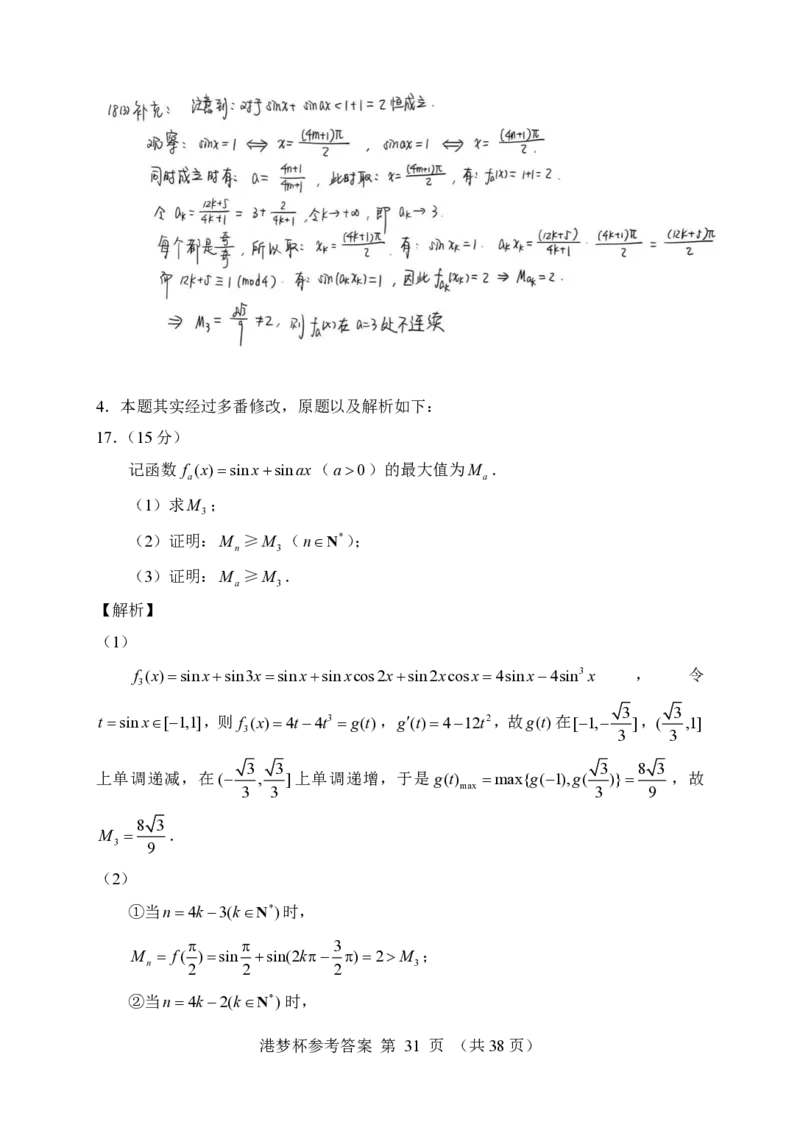 18(3)补充: 注意到:对于sinx+sinax<1+1=2恒成立.
观察: sinx=1 ⇔ x=(4m+1)π/2 , sinax=1 ⇔ x=(4n+1)π/2.
同时成立时有: a=(4n+1)/(4m+1) , 此时取: x=(4m+1)π/2 , 有: fₐ(x)=1+1=2.
令 aₖ=(12k+5)/(4k+1)=3+2/(4k+1) ,令k→+∞,即 aₖ→3.
每个都是奇/奇,所以取: xₖ=(4k+1)π/2. 有: sinxₖ=1. aₖxₖ=(12k+5)/(4k+1)·(4k+1)π/2=(12k+5)π/2
而 12k+5≡1(mod4). 有: sin(aₖxₖ)=1 ,因此 f_{aₖ}(xₖ)=2 ⇒ M_{aₖ}=2.
⇒ M₃=8√3/9≠2, 则fₐ(x)在a=3处不连续
4．本题其实经过多番修改，原题以及解析如下：
17.（15分）
记函数 fₐ(x)=sinx+sinax（a>0）的最大值为Mₐ．
（1）求M₃；
（2）证明：Mₙ≥M₃（n∈N*）；
（3）证明：Mₐ≥M₃．
【解析】
（1）
f₃(x)=sinx+sin3x=sinx+sinxcos2x+sin2xcosx=4sinx−4sin³x ， 令
t=sinx∈[−1,1]，则 f₃(x)=4t−4t³=g(t)，g′(t)=4−12t²，故g(t)在[−1,−√3/3]，(√3/3,1]
上单调递减，在(−√3/3,√3/3]上单调递增，于是 g(t)max=max{g(−1),g(√3/3)}=8√3/9，故
M₃=8√3/9．
（2）
①当n=4k−3(k∈N*)时，
Mₙ=f(π/2)=sinπ/2+sin(2kπ−3/2π)=2>M₃；
②当n=4k−2(k∈N*)时，
港梦杯参考答案 第 31 页 （共38页）